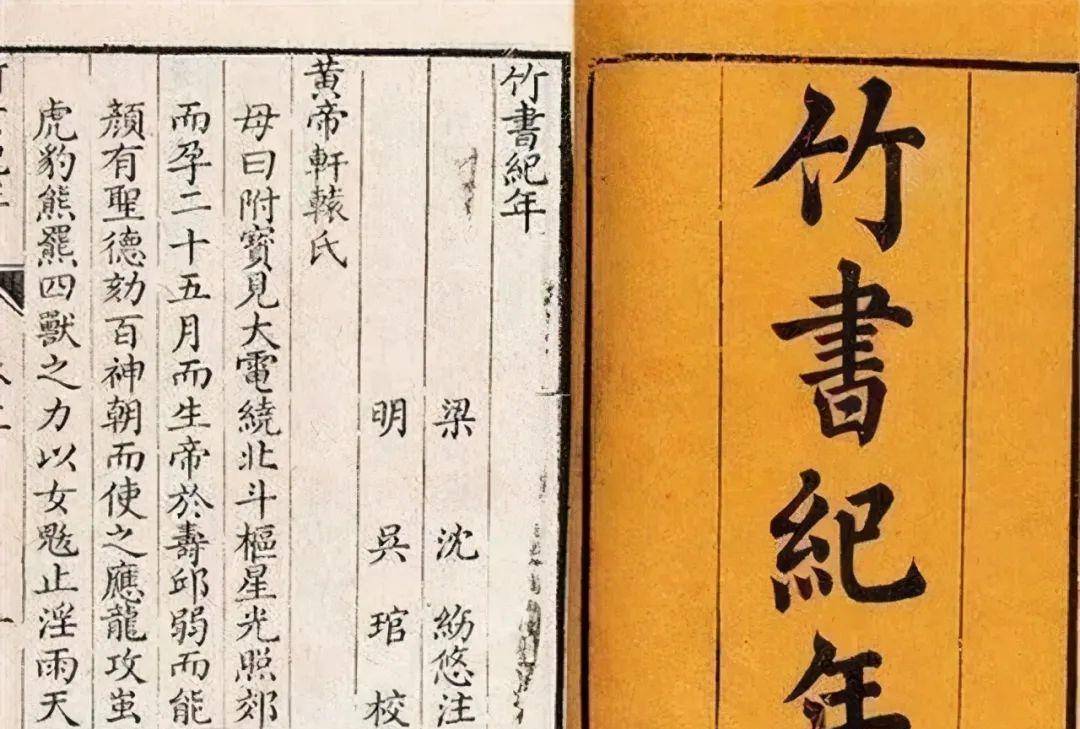 竹書紀年
竹書紀年
梁 沈 約悠注
明 吳 琯 校
黃帝軒轅氏
母曰附寶見大電繞北斗樞星光照郊
而孕二十五月而生帝於壽邱弱而能
顏有聖德劾百神朝而使之應龍攻蚩
虎豹熊羆四獸之力以女魃止淫雨天